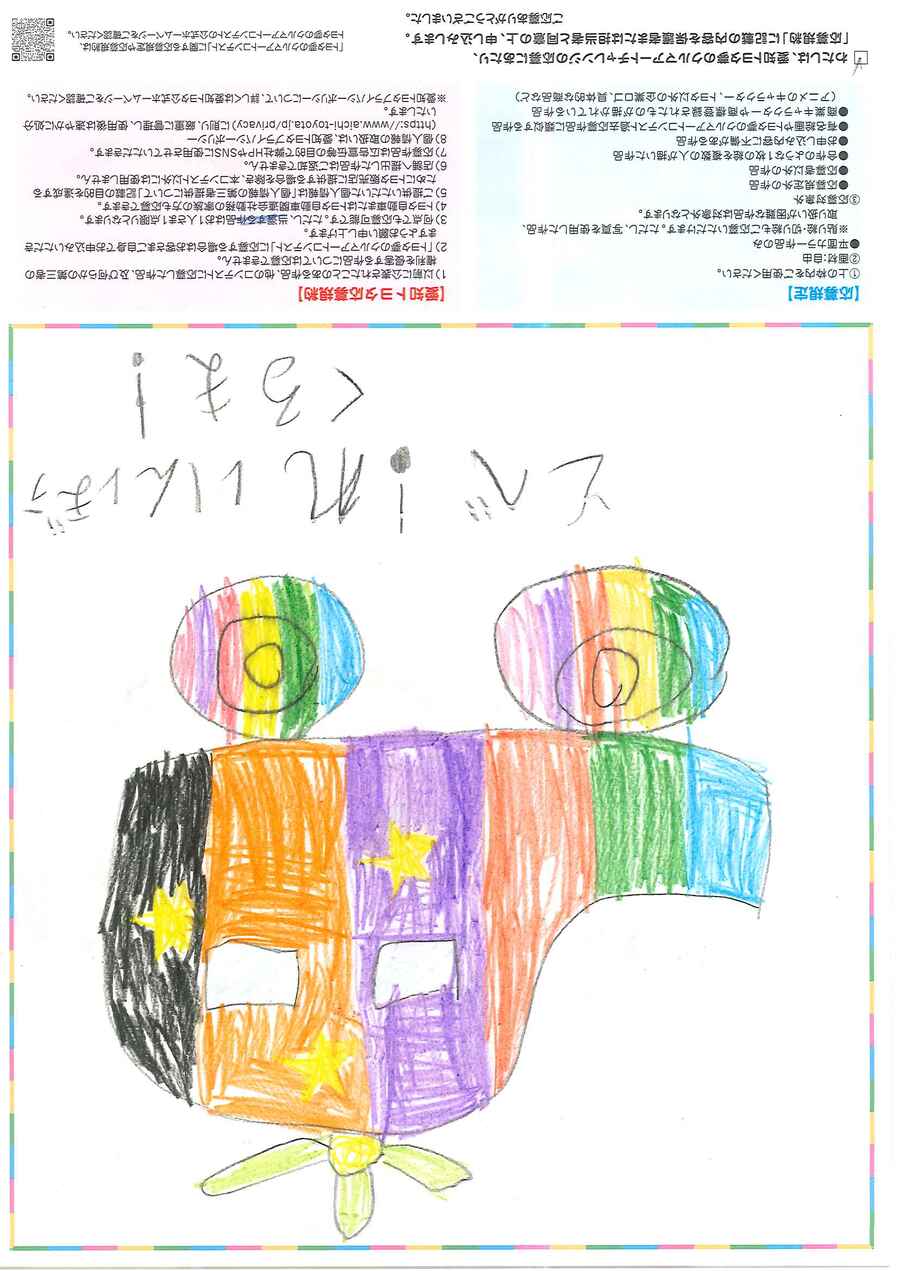 とべ!れいんぼう
くるま!
【応募規定】
①上の枠内をご使用ください。
②画材:自由
●平面カラー作品のみ
※貼り絵・切り絵もご応募いただけます。ただし、写真を使用した作品、
取り扱いが困難な作品は対象外となります。
③応募対象外
●応募規定外の作品
●応募者以外の作品
●合作のような1枚の絵を複数の人が描いた作品
●お申し込み内容に不備がある作品
●有名絵画やトヨタ夢のクルマアートコンテスト過去応募作品に類似する作品
●商業キャラクターや商標登録されたものが描かれている作品
(アニメのキャラクター、トヨタ以外の企業ロゴ、具体的な商品など)
【愛知トヨタ応募規約】
1)以前に公表されたことのある作品、他のコンテストに応募した作品、及び何らかの第三者の
権利を侵害する作品については応募できません。
2)「トヨタ夢のクルマアートコンテスト」に応募する場合はお客さまご自身でお申込みいただき
ますようお願い申し上げます。
3)何点でも応募可能です。ただし、当選する作品はお1人さま1点限りとなります。
4)トヨタ自動車またはトヨタ自動車関連会社勤務の家族の方も応募できます。
5)ご提供いただいた個人情報は「個人情報の第三者提供について」記載の目的を達成する
ためにトヨタ販売店に提供する場合を除き、本コンテスト以外には使用しません。
6)店舗へ提出した作品はご返却できません。
7)応募作品は広告宣伝等の目的で弊社HPやSNSに使用させていただきます。
8)個人情報の取扱いは、愛知トヨタプライバシーポリシー
(https://www.aichi-toyota.jp/privacy)に則り、厳重に管理し、使用後は速やかに処分
いたします。
※愛知トヨタプライバシーポリシーについて、詳しくは愛知トヨタ公式ホームページをご確認ください。
わたしは、愛知トヨタ夢のクルマアートチャレンジの応募にあたり、
「応募規約」に記載の内容を保護者または担当者と同意の上、申し込みします。
ご応募ありがとうございました。
「トヨタ夢のクルマアートコンテストに関する応募規定や応募規約は、
トヨタ夢のクルマアートコンテストの公式ホームページをご確認ください。